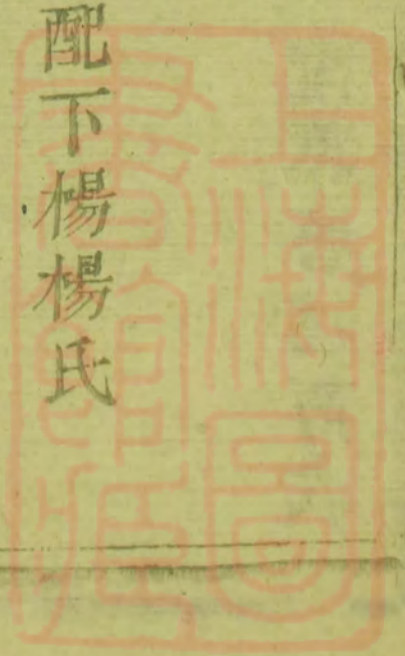 配下楊楊氏
上海圖
書館藏